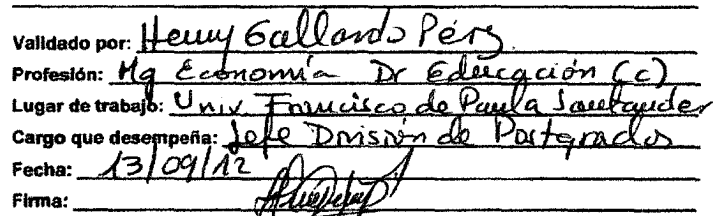 Validado por: Henry Gallardo Pérez
Profesión: Mg Economía Dr Educación (c)
Lugar de trabajo: Univ Francisco de Paula Santander
Cargo que desempeña: Jefe División de Postgrados
Fecha: 13/09/12
Firma: